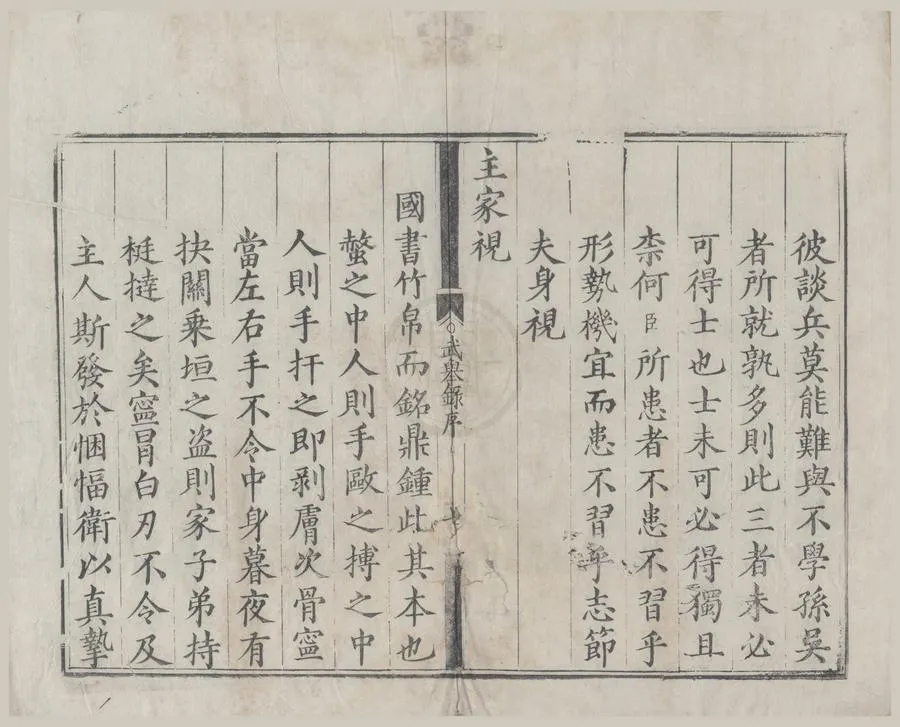 彼談兵莫能難與不學孫吳
者所就孰多則此三者未必
可得士也士未可必得獨且
柰何臣所患者不患不習乎
形勢機宜而患不習乎志節
夫身視
主家視
武舉錄序
國書竹帛而銘鼎鍾此其本也
螫之中人則手歐之搏之中
人則手扞之即剥膚次骨寧
當左右手不令中身暮夜有
抉關乗垣之盗則家子弟持
梃撻之矣寧冒白刃不令及
主人斯發於悃愊衛以真摯